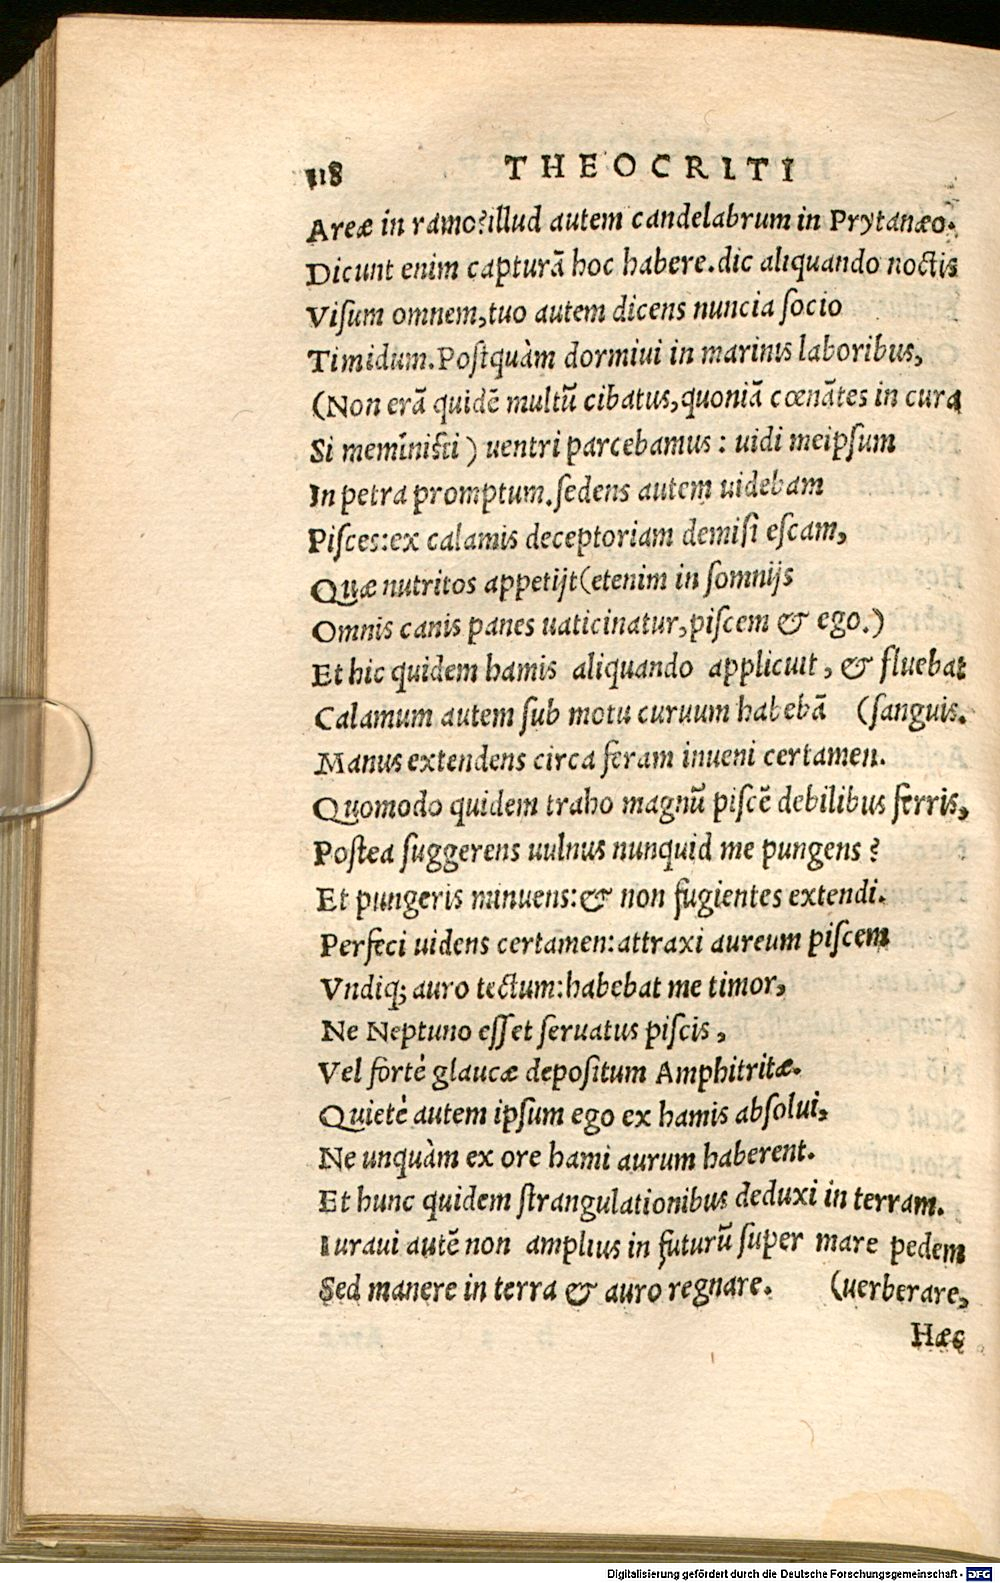 118 THEOCRITI
Areæ in ramo?illud autem candelabrum in Prytanæo.
Dicunt enim capturã hoc habere.dic aliquando noctis
Visum omnem,tuo autem dicens nuncia socio
Timidum.Postquàm dormiui in marinis laboribus,
(Non erã quidẽ multũ cibatus,quoniã cœnãtes in cura
Si meministi) uentri parcebamus: uidi meipsum
In petra promptum.sedens autem uidebam
Pisces:ex calamis deceptoriam demisi escam,
Quæ nutritos appetijt(etenim in somnijs
Omnis canis panes uaticinatur,piscem & ego.)
Et hic quidem hamis aliquando applicuit, & fluebat
Calamum autem sub motu curuum habebã (sanguis.
Manus extendens circa feram inueni certamen.
Quomodo quidem traho magnũ piscẽ debilibus ferris,
Postea suggerens uulnus nunquid me pungens?
Et pungeris minuens:& non fugientes extendi.
Perfeci uidens certamen:attraxi aureum piscem
Vndiq; auro tectum:habebat me timor,
Ne Neptuno esset seruatus piscis,
Vel fortè glaucæ depositum Amphitritæ.
Quietè autem ipsum ego ex hamis absolui,
Ne unquàm ex ore hami aurum haberent.
Et hunc quidem strangulationibus deduxi in terram.
Iuraui autẽ non amplius in futurũ super mare pedem
Sed manere in terra & auro regnare. (uerberare,
Hæc
Digitalisierung gefördert durch die Deutsche Forschungsgemeinschaft - DFG